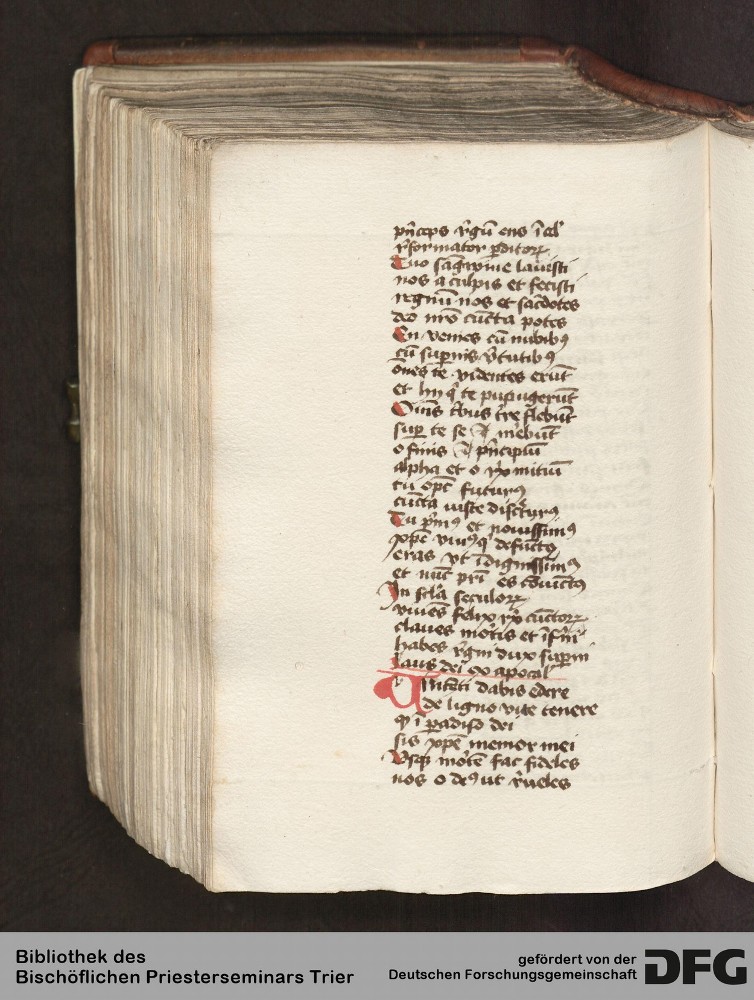 pn̄ceps r̄gū ens ī cel'
r̄formator p̄ditoꝝ
Tuo sāgwine lauisti
nos a culpis et fecisti
regnū nos et sac̄dotes
deo nr̄o cūcta potes
En venies cū nubibꝰ
cū sup̄nis v̄tutibꝰ
oēs te videntes erūt
et hij qͥ te pupugerūt
Oīns tͥbus tr̄e flebūt
suꝑ te se et
o finis et pn̄cipiū
alpha et o mitiū
tu futurꝰ
cūcta iuste
Tu pͥmꝰ et nouissimꝰ
xp̄e viuꝰ qͥ defūctꝰ
eras vt īdignissimꝰ
et nūc pr̄i es cōuictꝰ
In sc̄la seculoꝝ
viuēs felix rex cūctoꝝ
claues mortis et īfͥni
habes r̄gni dux sup̄ni
Laus dei ex apocal'
Vincēti dabis edere
de ligno vite tenere
qͥ ī ꝑadiso dei
sis xp̄e memor mei
Vsqꝫ mortē fac fideles
nos o deꝰ ut r̄ueles
Bibliothek des
Bischöflichen Priesterseminars Trier
gefördert von der
Deutschen Forschungsgemeinschaft
DFG